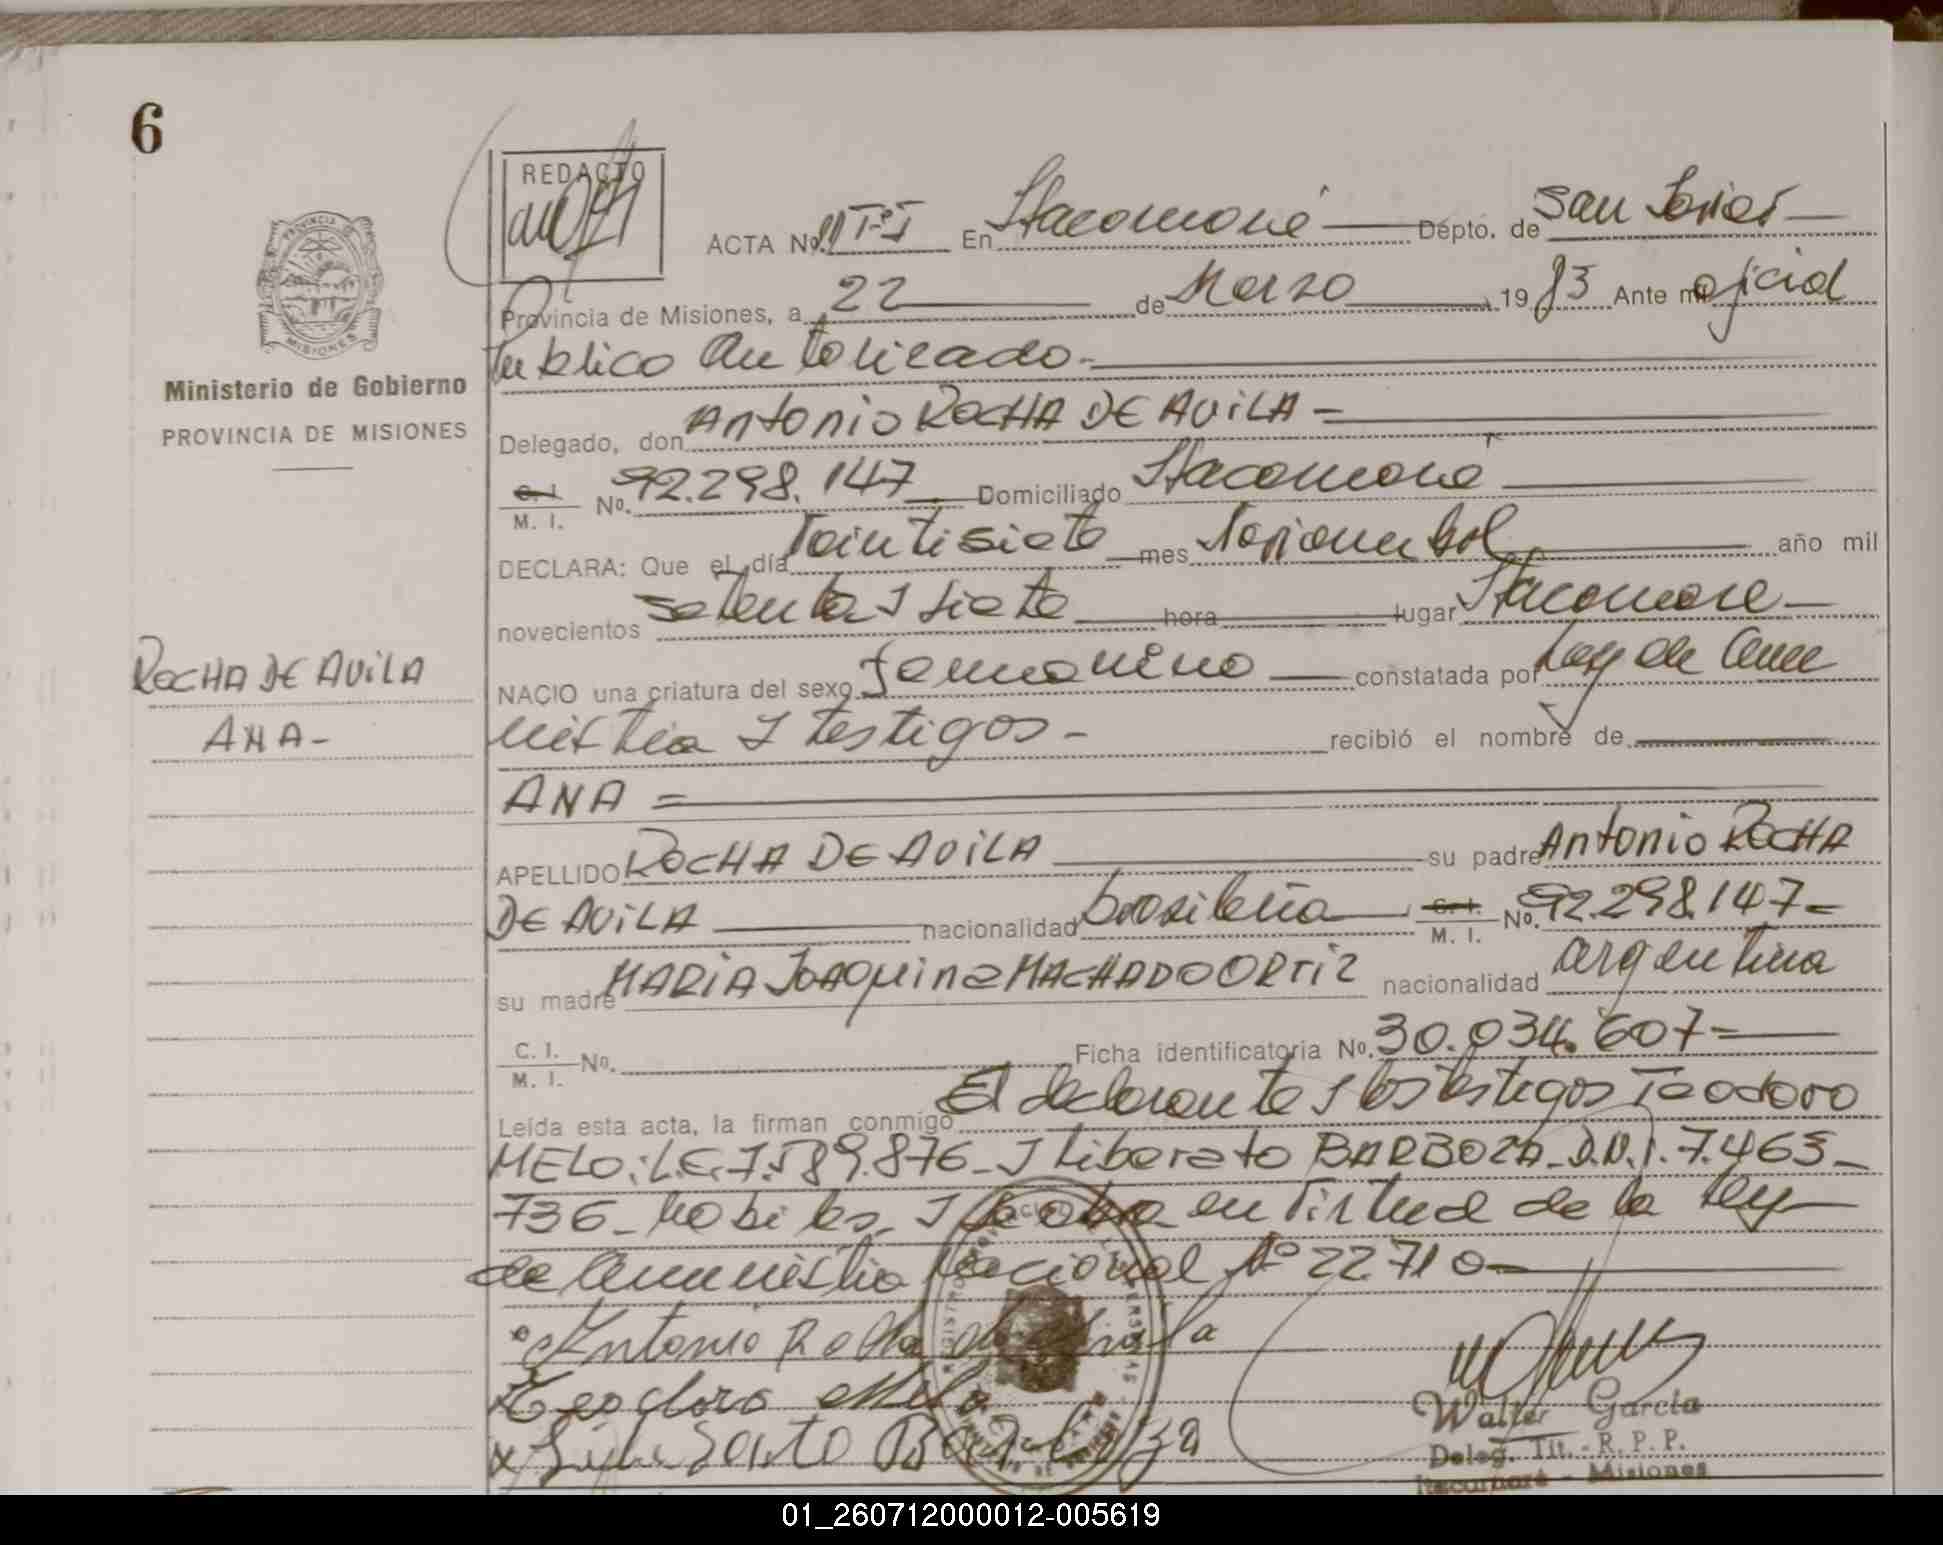 6
REDACTO
ACTA Nº En Itacaruaré Depto. de San Javier
Provincia de Misiones, a 22 de Marzo 1983 Ante mi oficial
Publico Autorizado.
Delegado, don Antonio ROCHA DE AVILA
PROVINCIA DE MISIONES
MISIONES
Ministerio de Gobierno
PROVINCIA DE MISIONES
C. I. M. I. Nº. 92.298.147 Domiciliado Itacaruaré
DECLARA: Que el día Veintisiete mes Noviembre año mil
novecientos setenta y siete hora lugar Itacaruaré
ROCHA DE AVILA
ANA-
NACIO una criatura del sexo femenino constatada por Ley de Am
nistia y testigos - recibió el nombre de
ANA =
APELLIDO ROCHA DE AVILA su padre Antonio ROCHA
DE AVILA nacionalidad brasileña C. I. M. I. Nº. 92.298.147=
su madre MARIA JOAQUINA MACHADO ORTIZ nacionalidad argentina
C. I. M. I. Nº. Ficha identificatoria Nº. 30.034.607=
Leída esta acta, la firman conmigo El declarante y los testigos Teodoro
MELO: L.E. 7.589.876_ y Liberato BARBOZA_D.N.I. 7.463_
736_ habiles_ y se labra en virtud de la ley
de Amnistia Nacional Nº 22.710
Antonio Rocha de Avila
Teodoro Melo
Barboza
Walter Garcia
Deleg. Tit. - R. P. P.
Itacaruaré - Misiones
01_260712000012-005619